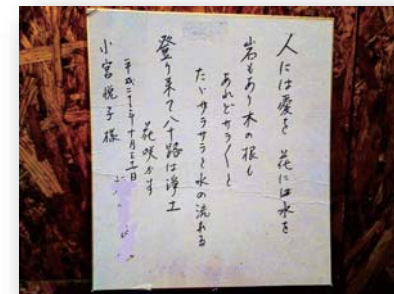 人には愛を 花には水を
岩もあり木の根も
あれどサラ〱と
たゞサラサラと水の流れる
登り来て八十路は浄土
花咲かす
平成二十年十月二十二日
小宮悦子様